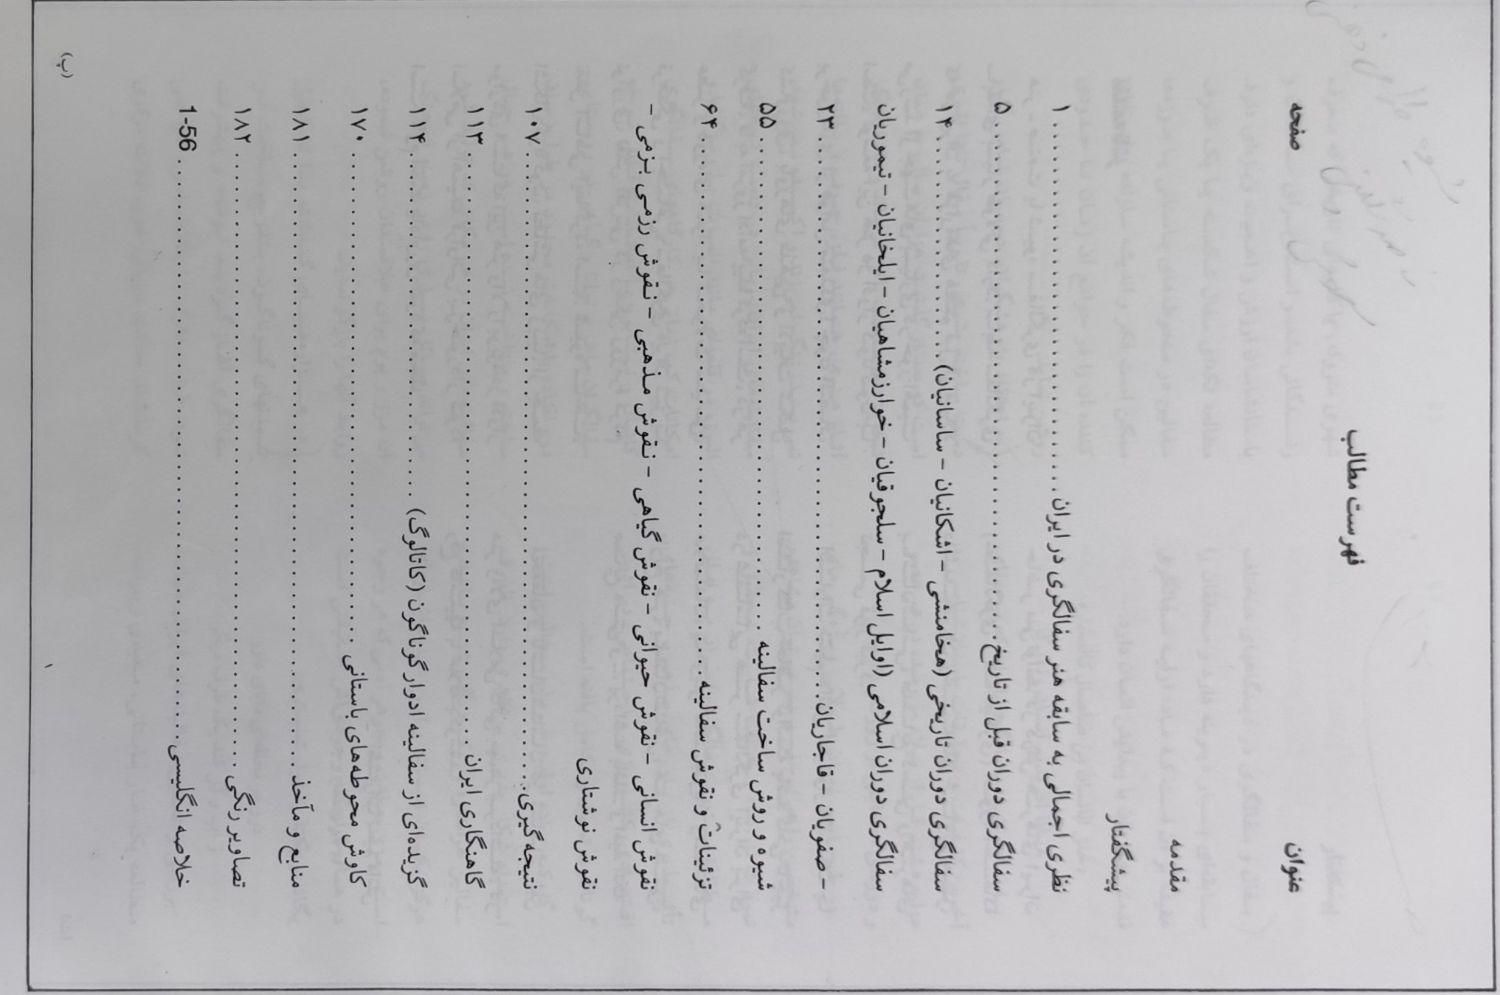 فهرست مطالب
عنوان صفحه
پیشگفتار
مقدمه
نظری اجمالی به سابقه هنر سفالگری در ایران ........ ۱
سفالگری دوران قبل از تاریخ ........ ۵
سفالگری دوران تاریخی (هخامنشی - اشکانیان - ساسانیان) ........ ۱۴
سفالگری دوران اسلامی (اوایل اسلام - سلجوقیان - خوارزمشاهیان - ایلخانیان - تیموریان
- صفویان - قاجاریان ........ ۲۳
شیوه و روش ساخت سفالینه ........ ۵۵
تزئینات و نقوش سفالینه ........ ۶۴
نقوش انسانی - نقوش حیوانی - نقوش گیاهی - نقوش مذهبی - نقوش رزمی بزمی -
نقوش نوشتاری
نتیجه گیری ........ ۱۰۷
گاهنگاری ایران ........ ۱۱۳
گزیده‌ای از سفالینه ادوار گوناگون (کاتالوگ) ........ ۱۱۴
کاوش محوطه‌های باستانی ........ ۱۷۰
منابع و مآخذ ........ ۱۸۱
تصاویر رنگی ........ ۱۸۲
خلاصه انگلیسی ........ 1-56
(پ)